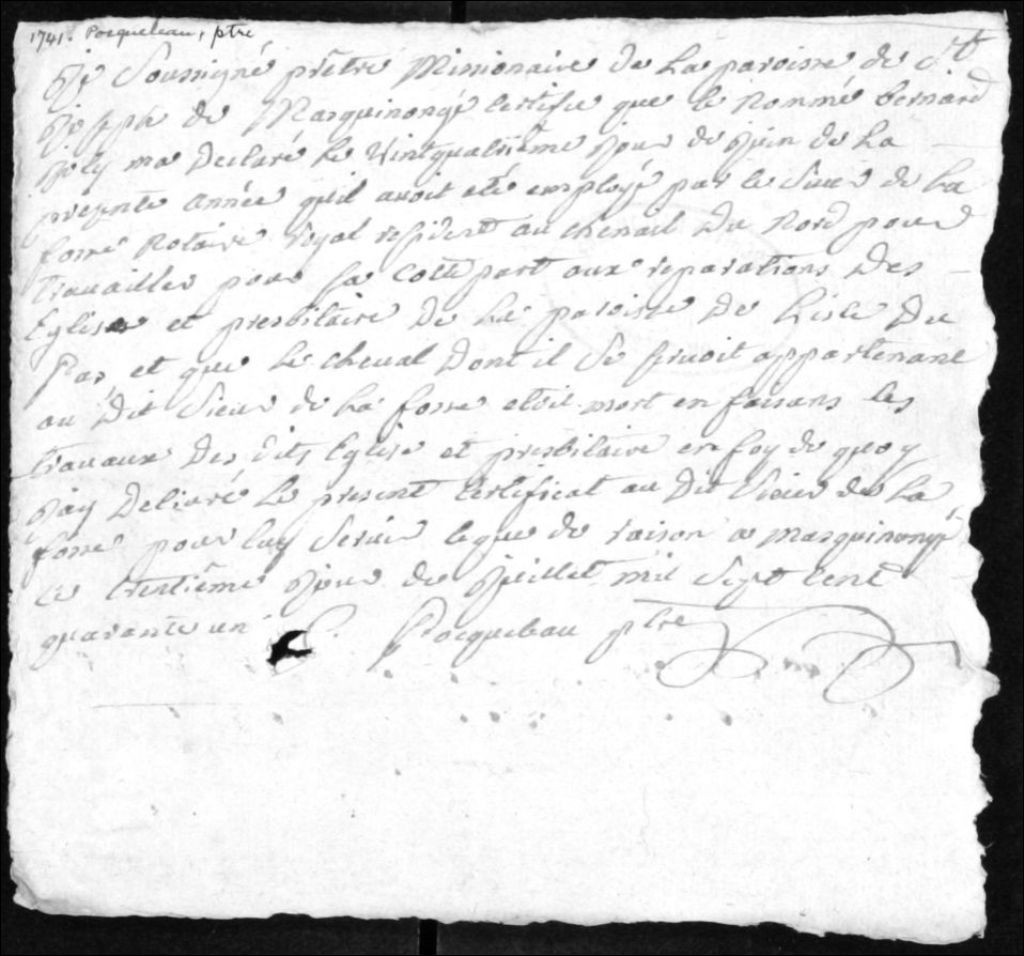 1741. Pocqueleau, ptre
Je Soussigné prêtre Missionaire de La paroisse de St
Joseph de Masquinongé Certifie que le nommé bernard
Joly ma Declaré Le Vintquatrième Jour de Juin de La
presente année qu'il avoit eté employé par le Sieur de La
fosse Notaire royal resident au chenail Du Nord pour
travailler pour sa Cotte part aux reparations Des
Eglise et presbitaire De La paroisse De Lisle Du
Pas, et que Le cheval Dont il Se servoit appartenant
au Dit Sieur de La fosse etoit mort en faisans les
travaux Des dits Eglise et presbitaire en foy de quoy
Jay Delivré Le present Certificat au Dit Sieur de La
fosse pour luy Servir Ce que de raison a Masquinongé
Ce trentième Jour de Jüillet mil Sept Cent
quarante un Pocqueleau ptre